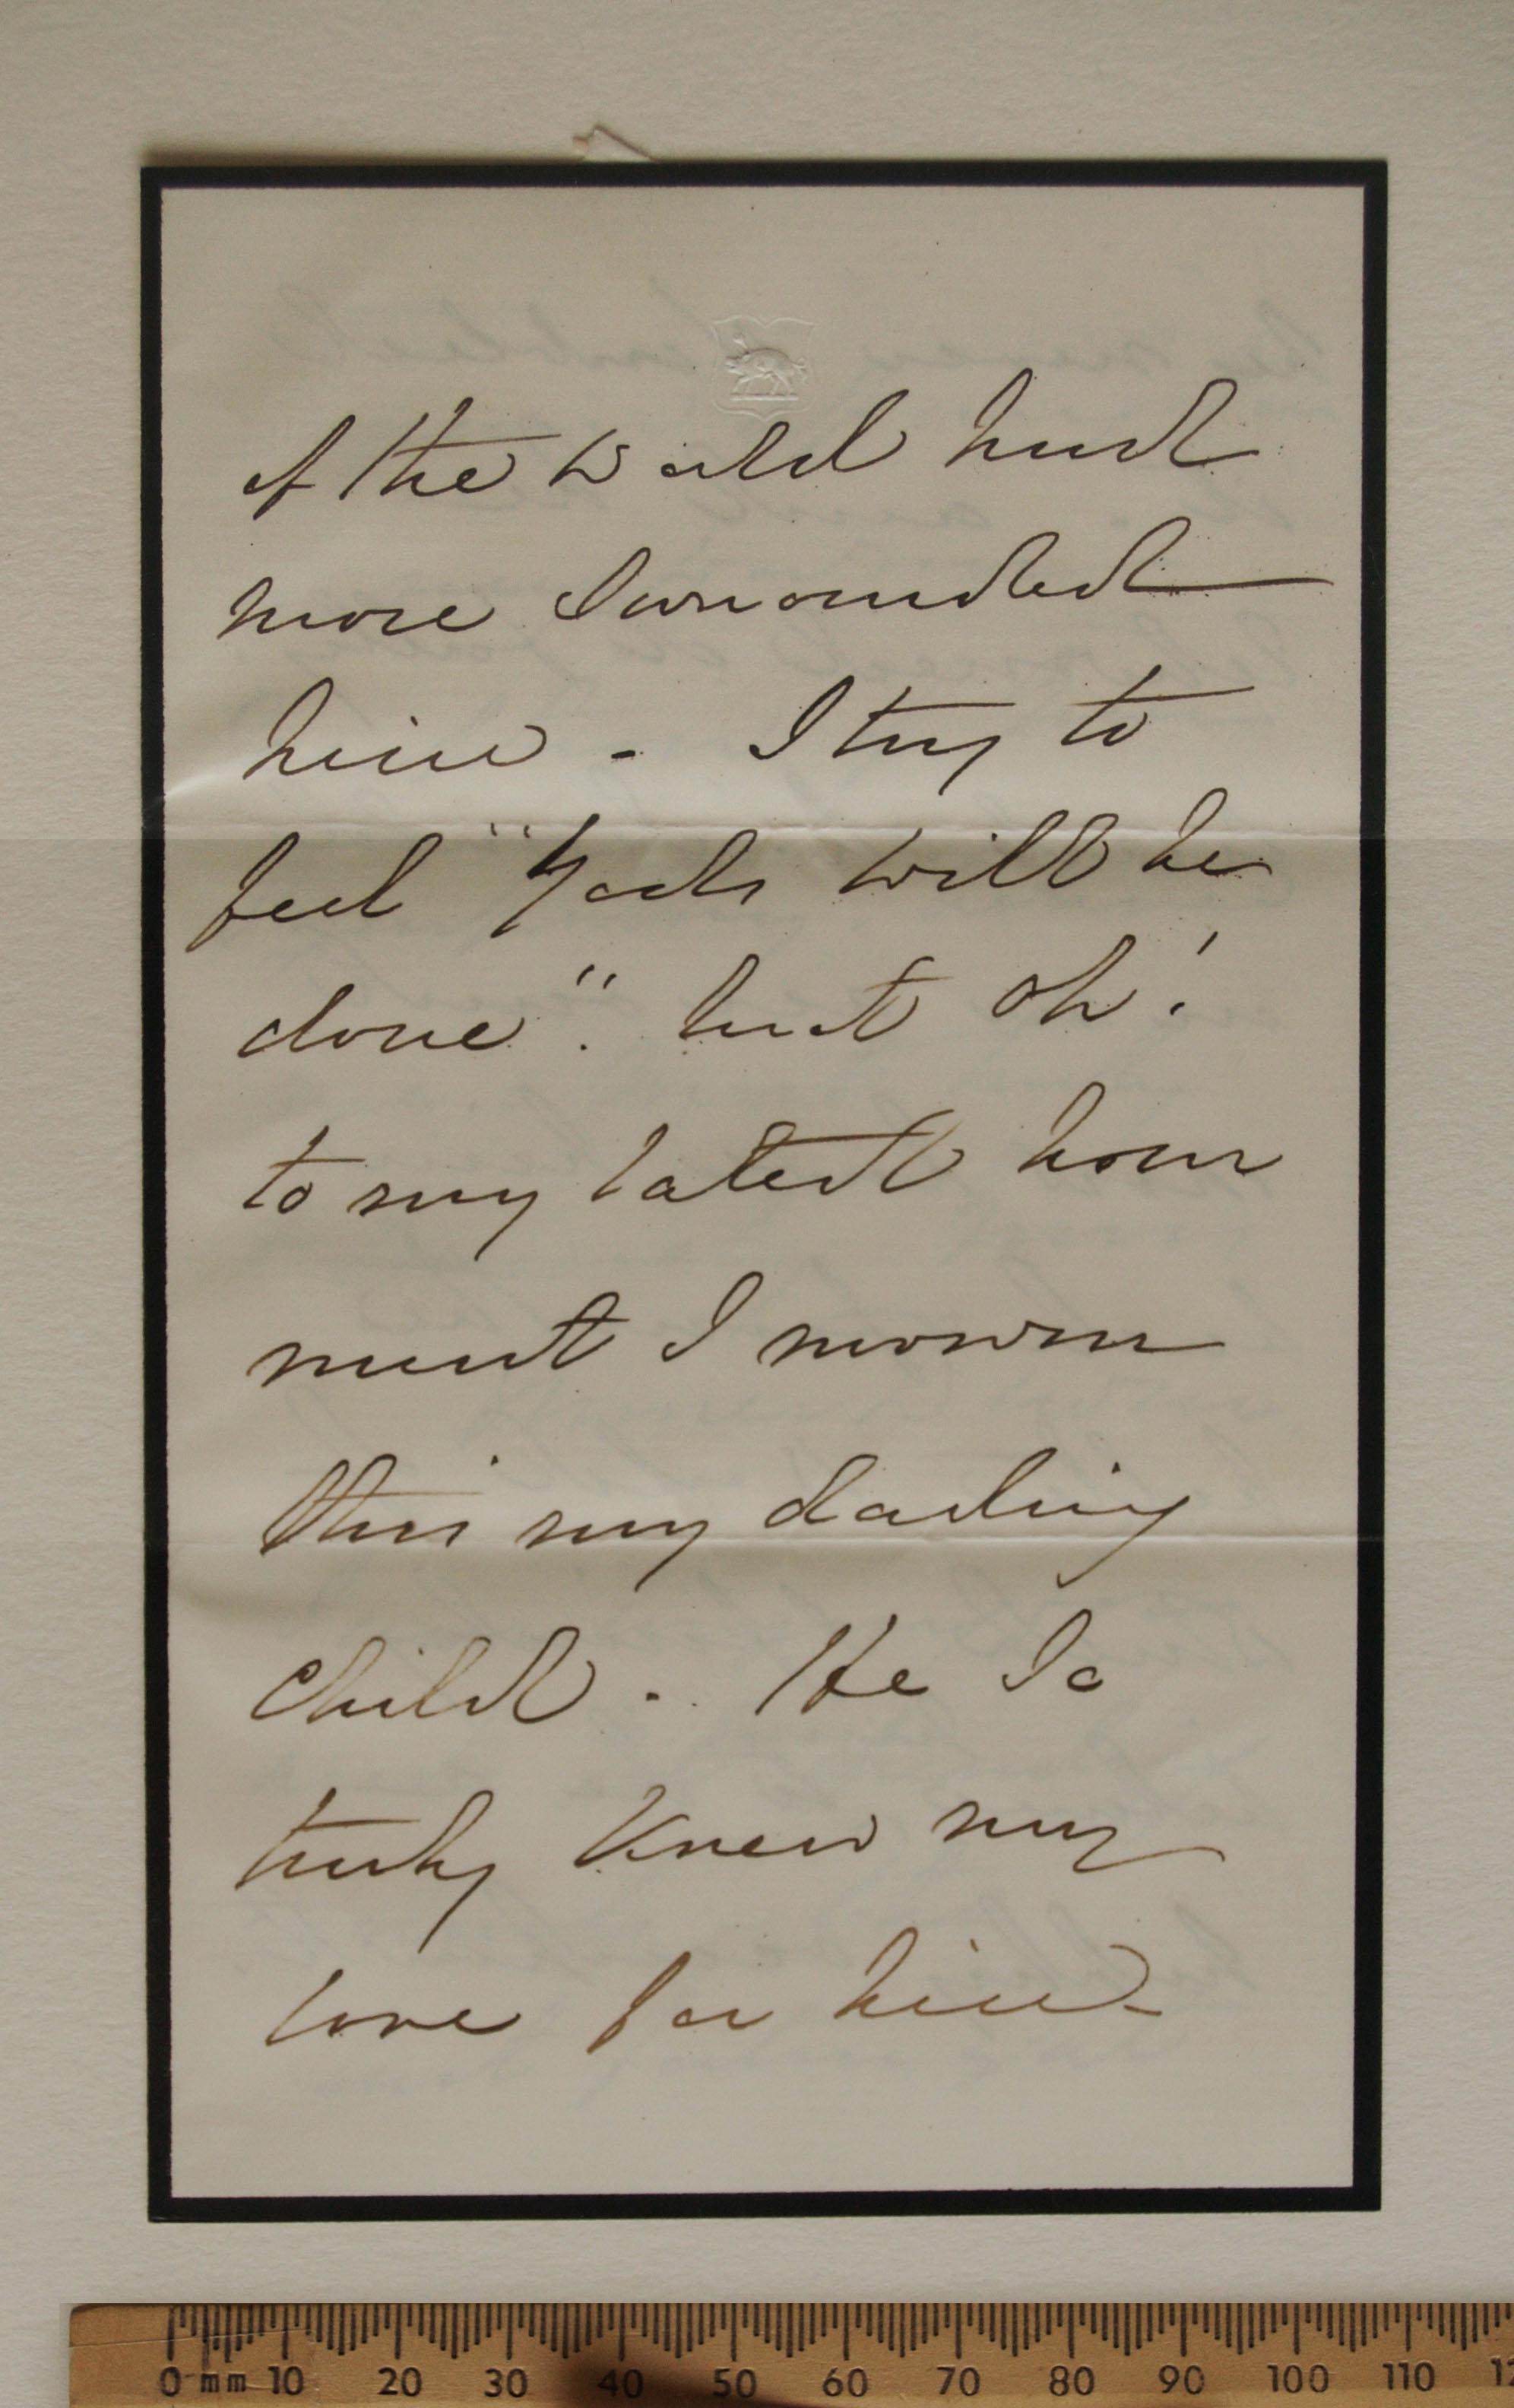 of the world had
more surrounded
him. I try to
feel "Gods will be
done". but oh!
to my latest hour
must I mourn
this my darling
child. He so
truly knew my
love for him
0 mm 10 20 30 40 50 60 70 80 90 100 110 12